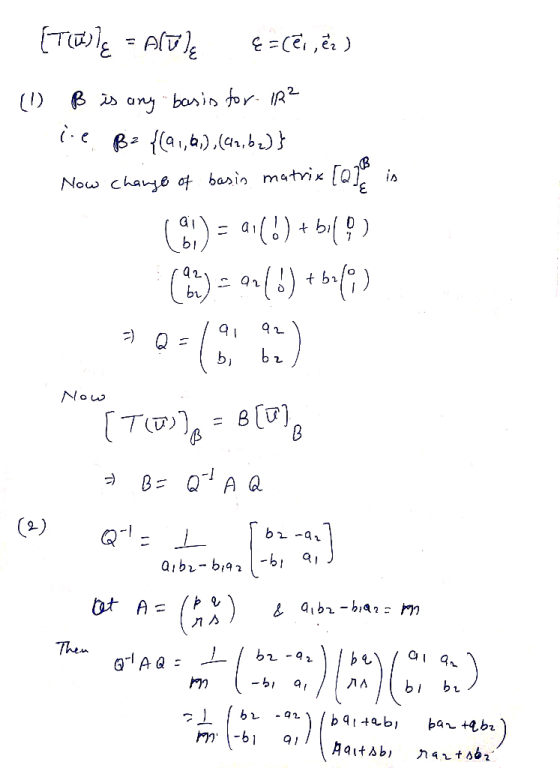 [T(ū)]ε = A[ū]ε   ε = (e⃗₁, e⃗₂)
(1) β is any basis for ℝ²
i.e β = {(a₁,b₁),(a₂,b₂)}
Now change of basis matrix [Q]ᵝε is
(a₁ b₁) = a₁(1 0) + b₁(0 1)
(a₂ b₂) = a₂(1 0) + b₂(0 1)
⇒ Q = (a₁ a₂ / b₁ b₂)
Now
[T(ū)]β = B[ū]β
⇒ B = Q⁻¹ A Q
(2) Q⁻¹ = 1/(a₁b₂-b₁a₂) [b₂ -a₂ / -b₁ a₁]
Let A = (p q / r s) & a₁b₂-b₁a₂ = m
Then Q⁻¹AQ = 1/m (b₂ -a₂ / -b₁ a₁)(p q / r s)(a₁ a₂ / b₁ b₂)
= 1/m (b₂ -a₂ / -b₁ a₁)(pa₁+qb₁ pa₂+qb₂ / ra₁+sb₁ ra₂+sb₂)